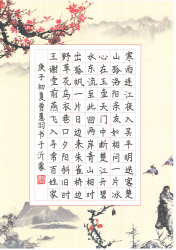 寒雨连江夜入吴平明送客楚
山孤洛阳亲友如相问一片冰
心在玉壶天门中断楚江开碧
水东流至此回两岸青山相对
出孤帆一片日边来朱雀桥边
野草花乌衣巷口夕阳斜旧时
王谢堂前燕飞入寻常百姓家
庚子初夏